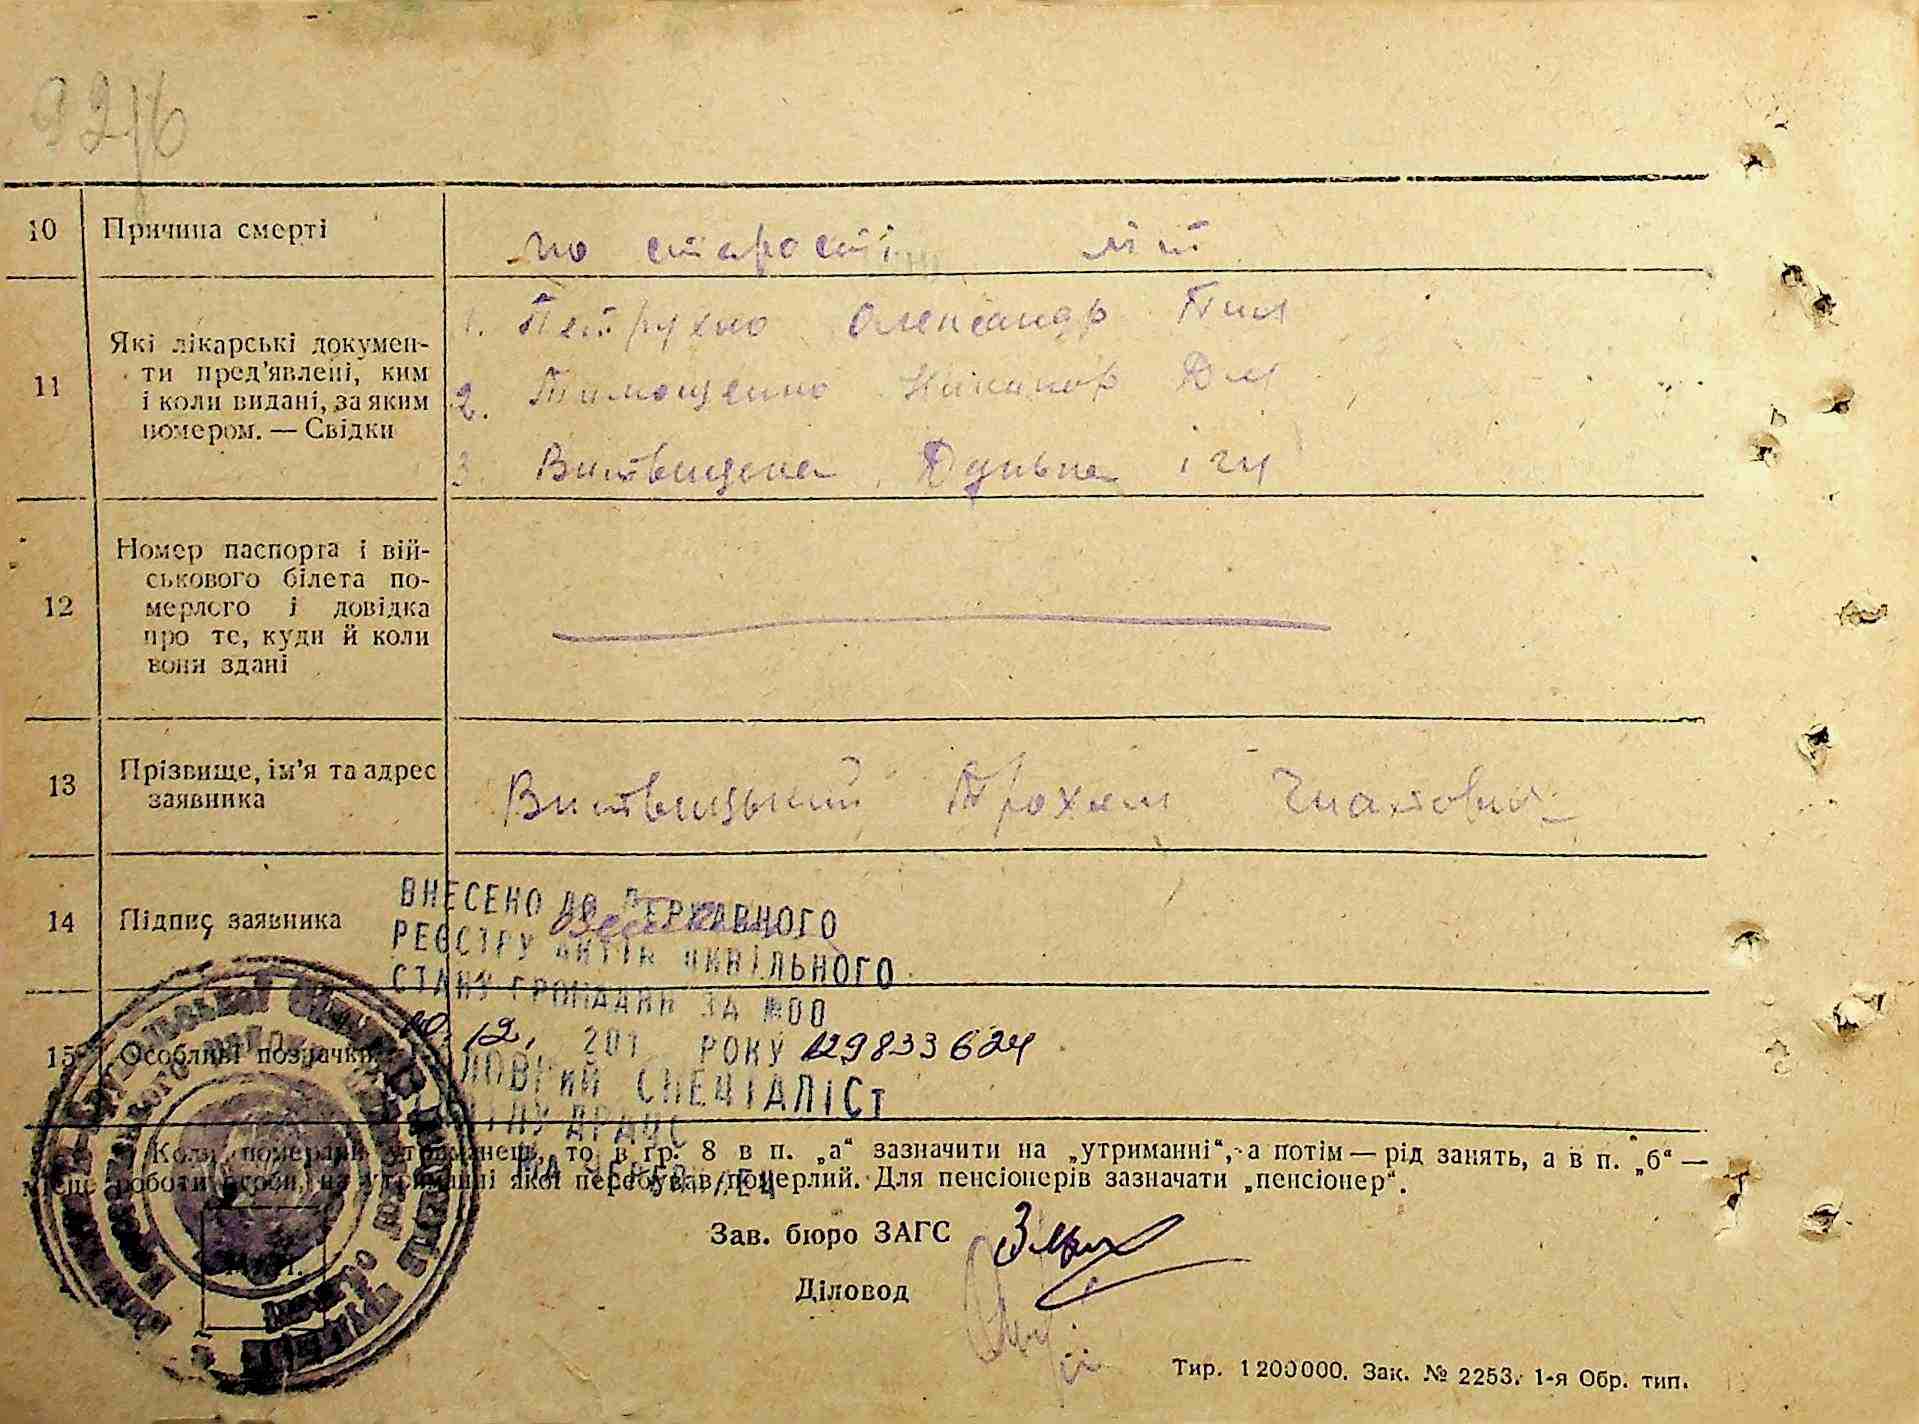 10
Причина смерті
по старості літ
11
Які лікарські докумен-
ти пред'явлені, ким
і коли видані, за яким
номером. — Свідки
1. Петрухно Олександр Пил
2. Тимощенко Никипор Дм
3. Витвицька
12
Номер паспорта і вій-
ськового білета по-
мерлого і довідка
про те, куди й коли
вони здані
13
Прізвище, ім'я та адрес
заявника
Витвицький Трохим Гнатович
14
Підпис заявника
ВНЕСЕНО ДО ДЕРЖАВНОГО
РЕЄСТРУ АКТІВ ЦИВІЛЬНОГО
СТАНУ ГРОМАДЯН ЗА №00
12. 201 РОКУ 129833624
15
Особливі позначки
ГОЛОВНИЙ СПЕЦІАЛІСТ
ВІДДІЛУ ДРАЦС
Коли померлий утриманець, то в гр. 8 в п. „а“ зазначити на „утриманні“, а потім — рід занять, а в п. „б“ —
місце роботи особи, на утриманні якої перебував померлий. Для пенсіонерів зазначати „пенсіонер“.
Зав. бюро ЗАГС
Діловод
Тир. 1200000. Зак. № 2253. 1-я Обр. тип.